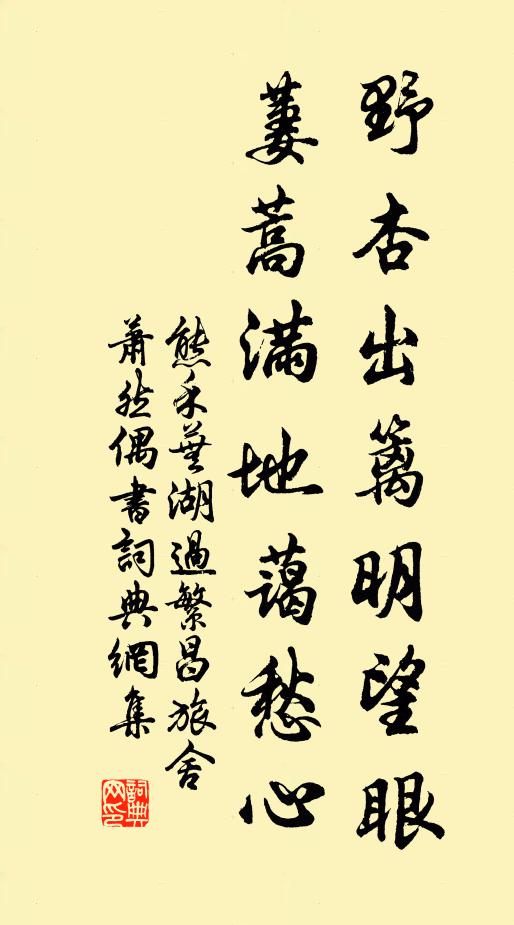 野杏出篱明望眼
蒌蒿满地蔼愁心
熊禾蕪湖過繁昌旅舍
蕭然偶書詞典網集
詞典网印